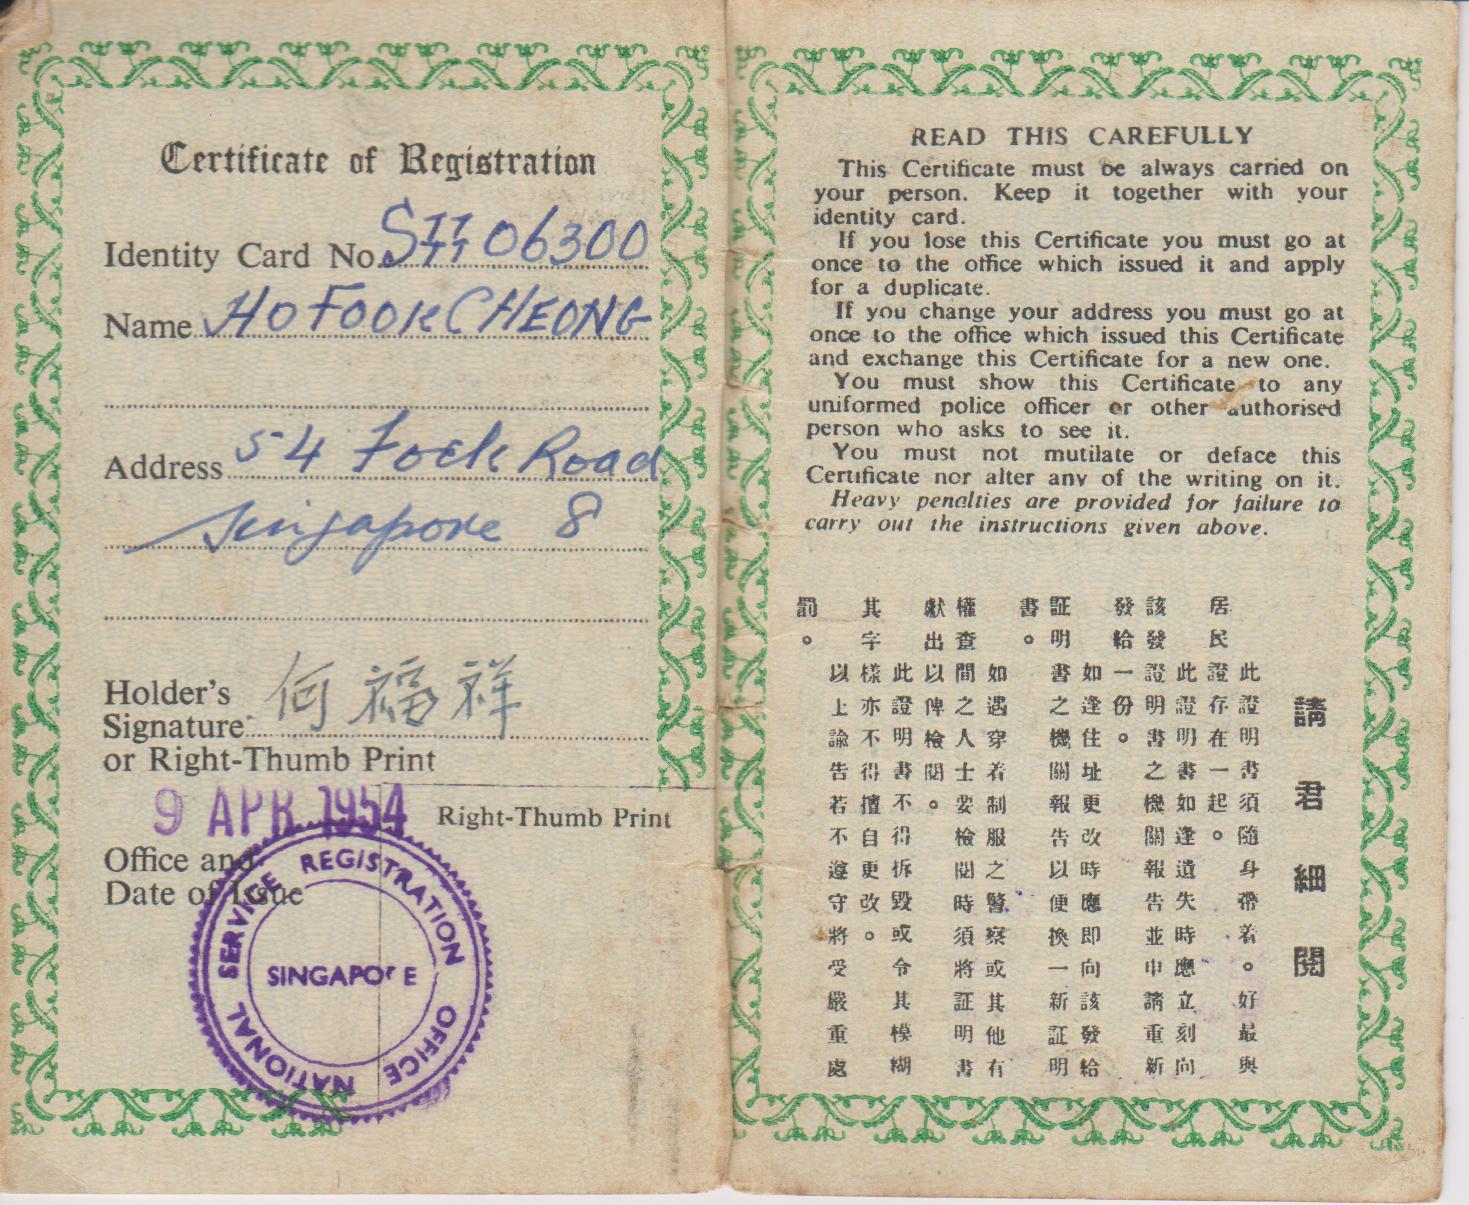 Certificate of Registration
Identity Card No. S77 06300
Name HO FOOK CHEONG
Address 54 Fock Road
Singapore 8
Holder's
Signature 何福祥
or Right-Thumb Print
9 APR 1954
Right-Thumb Print
Office and
Date of Issue
NATIONAL SERVICE REGISTRATION OFFICE
SINGAPORE
READ THIS CAREFULLY
This Certificate must be always carried on
your person. Keep it together with your
identity card.
If you lose this Certificate you must go at
once to the office which issued it and apply
for a duplicate.
If you change your address you must go at
once to the office which issued this Certificate
and exchange this Certificate for a new one.
You must show this Certificate to any
uniformed police officer or other authorised
person who asks to see it.
You must not mutilate or deface this
Certificate nor alter any of the writing on it.
Heavy penalties are provided for failure to
carry out the instructions given above.
請君細閱
此證明書須隨身帶着。好最與
居民證存在一起。
此證明書如逢遺失時應立刻向
該發證明書之機關報告並申請重新
發給一份。
如逢住址更改時應即向該發給
証明書之機關報告以便換一新証明
書。
如遇穿着制服之警察或其他有
權查問之人士要檢閱時須將証明書
獻出以俾檢閱。
此證明書不得拆毀或令其模糊
其字樣亦不得擅自更改。
以上諭告若不遵守將受嚴重處
罰。